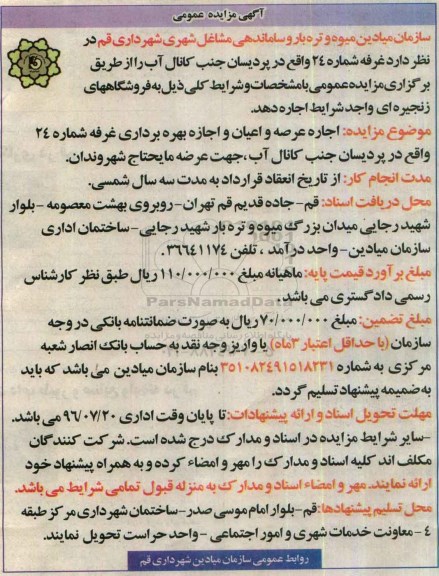 آگهی مزایده عمومی
سازمان میادین میوه و تره بار و ساماندهی مشاغل شهری شهرداری قم در
نظر دارد غرفه شماره ۲۴ واقع در پردیسان جنب کانال آب را از طریق
برگزاری مزایده عمومی با مشخصات و شرایط کلی ذیل به فروشگاههای
زنجیره ای واجد شرایط اجاره دهد.
موضوع مزایده: اجاره عرصه و اعیان و اجازه بهره برداری غرفه شماره ۲۴
واقع در پردیسان جنب کانال آب، جهت عرضه مایحتاج شهروندان.
مدت انجام کار: از تاریخ انعقاد قرارداد به مدت سه سال شمسی.
محل دریافت اسناد: قم- جاده قدیم قم تهران- روبروی بهشت معصومه - بلوار
شهید رجایی میدان بزرگ میوه و تره بار شهید رجایی- ساختمان اداری
سازمان میادین- واحد درآمد ، تلفن ۳۶۶۴۱۱۷۴.
مبلغ برآورد قیمت پایه: ماهیانه مبلغ ۱۱۰/۰۰۰/۰۰۰ ریال طبق نظر کارشناس
رسمی دادگستری می باشد.
ParsNamadData
مبلغ تضمین: مبلغ ۷۰/۰۰۰/۰۰۰ ریال به صورت ضمانتنامه بانکی در وجه
سازمان (با حداقل اعتبار ۳ماه) یا واریز وجه نقد به حساب بانک انصار شعبه
مرکزی به شماره ۳۵۱۰۸۲۴۹۱۵۱۸۲۳۱ بنام سازمان میادین می باشد که باید
به ضمیمه پیشنهاد تسلیم گردد.
مهلت تحویل اسناد و ارائه پیشنهادات: تا پایان وقت اداری ۹۶/۰۷/۲۰ می باشد.
-سایر شرایط مزایده در اسناد و مدارک درج شده است. شرکت کنندگان
مکلف اند کلیه اسناد و مدارک را مهر و امضاء کرده و به همراه پیشنهاد خود
ارائه نمایند. مهر و امضاء اسناد و مدارک به منزله قبول تمامی شرایط می باشد.
محل تسلیم پیشنهادها: قم-بلوار امام موسی صدر-ساختمان شهرداری مرکز طبقه
۴- معاونت خدمات شهری و امور اجتماعی -واحد حراست تحویل نمایند.
روابط عمومی سازمان میادین شهرداری قم